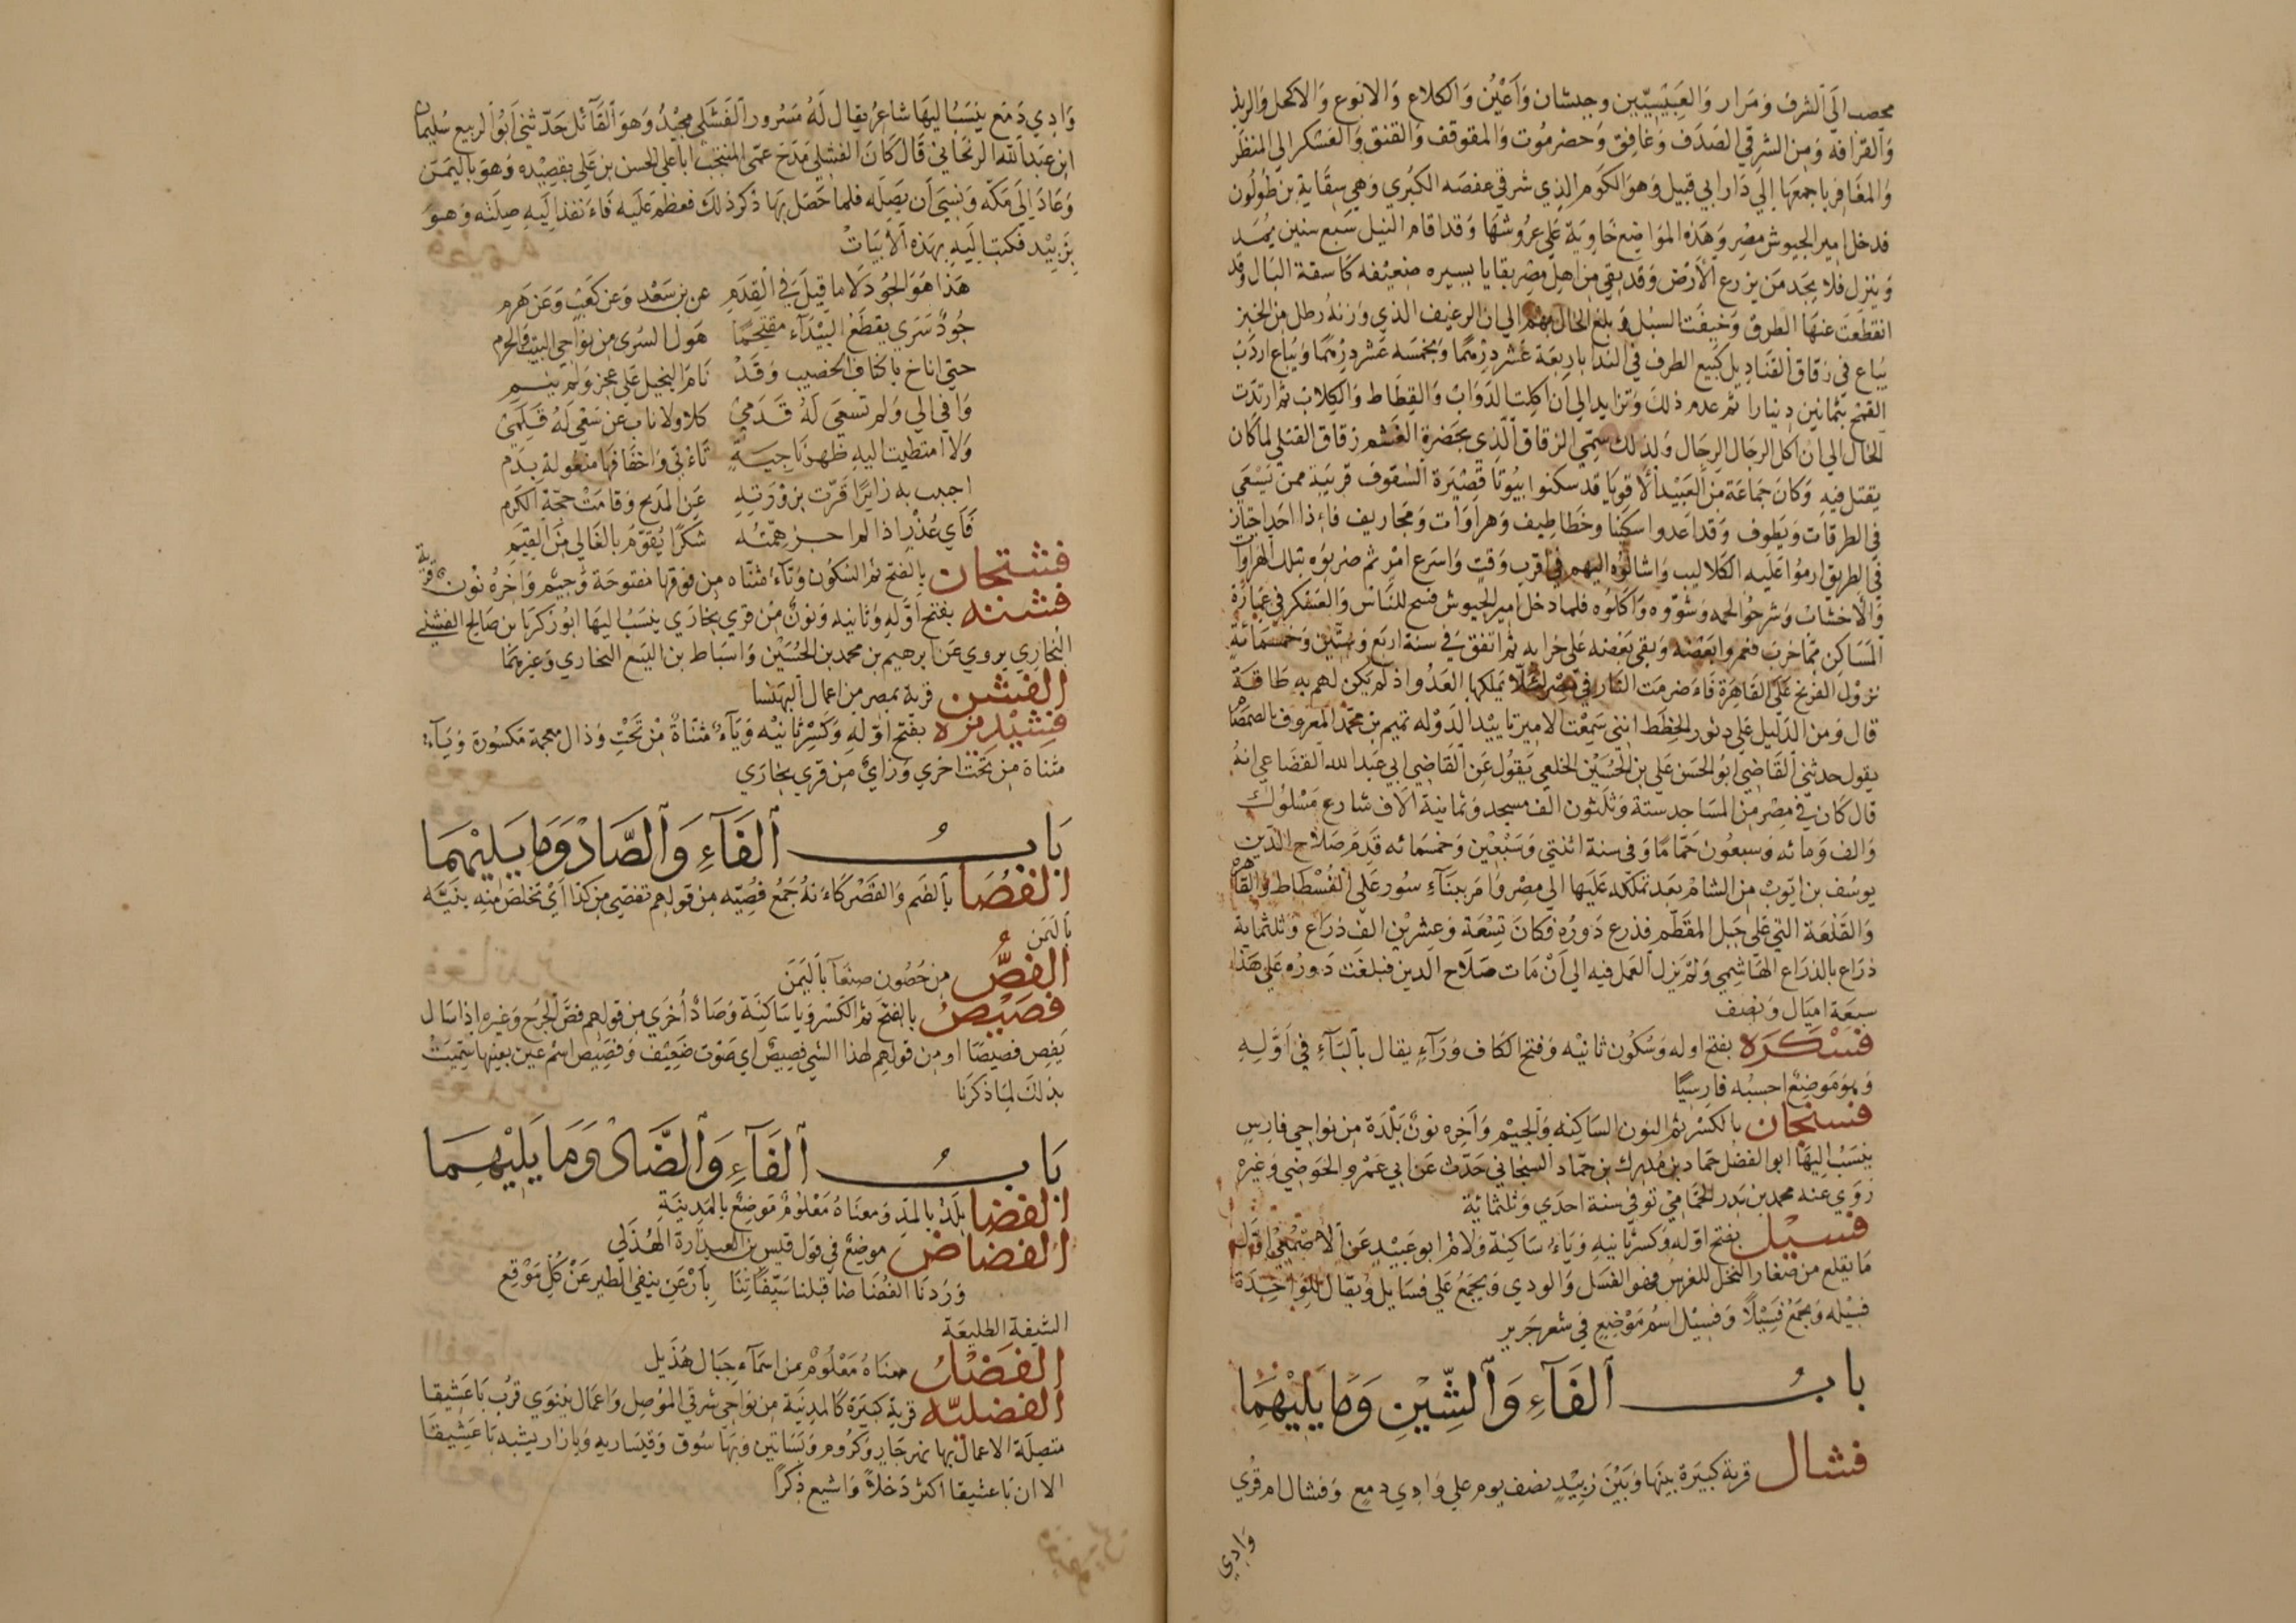 يحصب الى الشرف ومراد والعبسيين وحبشان واعين والكلاع والانبوع والاكحل والربذ
والقرافه ومن الشرقي الصدف وغافق وحضرموت والمقوقف والقنق والعسكر الي المنظر
والمغافر باجمعها الي دار ابي قبيل وهو الكوم الذي شرقي عفصه الكبري وهي سقاية بن طولون
فدخل امير الجيوش مصر وهذه المواضع خاوية علي عروشها وقد اقام النيل سبع سنين يمد
وينزل فلا يجد من يزرع الارض وقد بقي من اهل مصر بقايا يسيره ضعيفه كاسفة البال وقد
انقطعت عنها الطرق وخيفت السبل وبلغ الحال بهم الي ان الرغيف الذي وزنه رطل من الخبز
يباع في زقاق القناديل كبيع الطرف في الندا باربعة عشر درهما وبخمسه عشر درهما ويباع اردب
القمح بثمانين دينارا ثم عدم ذلك وتزايد الي ان اكلت الدواب والقطاط والكلاب ثم ارتدت
الحال الي ان اكل الرجال الرجال ولذلك سمي الزقاق الذي بحضرة الغشم زقاق القتلي لما كان
يقتل فيه وكان جماعة من العبيد الاقويا قد سكنوا بيوتا قصيرة السقوف قريبة ممن يسعي
في الطرقات ويطوف وقد اعدوا سكينا وخطاطيف وهراوات ومجاريف فاذا احد اجتاز
في الطريق ارموا عليه الكلاليب واشالوه اليهم في اقرب وقت واسرع امر ثم ضربوه بتلك الهراوا
والاخشاب وشرحوا لحمه وشووه واكلوه فلما دخل امير الجيوش فسح للناس والعسكر في عمارة
المساكن مما خرب فعمروا بعضه وبقي بعضه علي خرابه ثم اتفق في سنة اربع وستين وخمسمائة
نزول الفرنج علي القاهرة فاضرمت النار في مصر لئلا يملكها العدو اذ لم يكن لهم به طاقة
قال ومن الدليل علي دثور الخطط انني سمعت الامير تاييد الدوله تميم بن محمد المعروف بالصمصا
يقول حدثني القاضي ابو الحسن علي بن الحسين الخلعي يقول عن القاضي ابي عبد الله القضاعي انه
قال كان في مصر من المساجد ستة وثلثون الف مسجد وثمانية الاف شارع مسلوك
والف ومائه وسبعون حماما وفي سنة اثنتي وسبعين وخمسمائه قدم صلاح الدين
يوسف بن ايوب من الشام بعد تملكه عليها الي مصر وامر ببناء سور علي الفسطاط والقاهرة
والقلعة التي علي جبل المقطم فذرع دوره فكان تسعة وعشرين الف ذراع وثلثماية
ذراع بالذراع الهاشمي ولم يزل العمل فيه الي ان مات صلاح الدين فبلغت دوره علي هذا
سبعة اميال ونصف
فسكره بفتح اوله وسكون ثانيه وفتح الكاف وراء يقال بالباء في اوله
وهو موضع احسبه فارسيا
فسنجان بالكسر ثم النون الساكنه والجيم واخره نون بلدة من نواحي فارس
ينسب اليها ابو الفضل حماد بن مدرك بن حماد السنجاني حدث عن ابي عمرو الحوضي وغيره
روي عنه محمد بن بدر الحمامي توفي سنة احدي وثلثمائية
فسيل بفتح اوله وكسر ثانيه وياء ساكنة ولام ابو عبيد عن الاصمعي اول
ما يقلع من صغار النخل للغرس فهو الفسل والودي ويجمع علي فسايل ويقال للواحدة
فسيله ويجمع فسيلا وفسيل اسم موضع في شعر جرير
باب الفاء والشين وما يليهما
فشال قرية كبيرة بينها وبين زبيد نصف يوم علي وادي دمع وفشال ام قري
وادي
وادي دمع ينسب اليها شاعر يقال له مسرور الفشلي مجيد وهو القائل حدثني ابو الربيع سليمان
ابن عبد الله الريحاني قال كان الفشلي مدح عمي المنتجب ابا علي الحسن بن علي بقصيده وهو باليمن
وعاد الي مكة ونسي ان يصله فلما حصل بها ذكر ذلك فعظم عليه فانفذ اليه صلته وهو
بزبيد فكتب اليه بهذه الابيات
هذا هو الجود لا ما قيل في القدم عن بن سعد وعن كعب وعن هرم
جود سري يقطع البيداء مقتحما هول السري من نواحي البيت والحرم
حتي اناخ باكناف الخصيب وقد نام البخيل علي عجز ولم ينم
وافي الي ولم تسعي له قدمي كلا ولا ناب عن سعي له قلمي
ولا امتطيت اليه ظهر ناجية تاتي واخفافها منعولة بدم
احبب به زايرا قرت بزورته عن المدح وقامت حجة الكرم
فاي عذر اذا لم اجز همته شكرا يقوم بالغالي من القيم
فشتجان بالفتح ثم السكون وتاء مثناه من فوقها مفتوحة وجيم واخره نون قرية
فشنه بفتح اوله وثانيه ونون من قري بخاري ينسب اليها ابو زكريا بن صالح الفشني
البخاري يروي عن ابرهيم بن محمد بن الحسين واسباط بن اليسع البخاري وغيرهما
الفشن قرية بمصر من اعمال البهنسا
فشيذيزه بفتح اوله وكسر ثانيه وياء مثناة من تحت وذال معجمة مكسورة وياء
مثناة من تحت اخري وزاي من قري بخاري
باب الفاء والصاد وما يليهما
الفصا بالضم والقصر كانه جمع فصيه من قولهم تفصي من كذا اي تخلص منه بثنية
باليمن
الفص من حصون صنعا باليمن
فصيص بالفتح ثم الكسر ويا ساكنة وصاد اخري من قولهم فص الجرح وغيره اذا سال
يفص فصيصا او من قولهم لهذا الشي فصيص اي صوت ضعيف وفصيص اسم عين بعينها سميت
بذلك لما ذكرنا
باب الفاء والضاد وما يليهما
الفضا بلد بالمد ومعناه معلوم موضع بالمدينة
الفضاض موضع في قول قيس بن العيزارة الهذلي
وردنا الفضاضا قبلنا سيفاتنا بارعن ينفي الطير عن كل موقع
الشيفة الطليعة
معناه معلوم من اسماء جبال هذيل
الفضليه قرية كبيرة كالمدينة من نواحي شرقي الموصل واعمال نينوي قرب باعشيقا
متصلة الاعمال بها نهر جار وكروم وبساتين وبها سوق وقيساريه وبازار يشبه باعشيقا
الا ان باعشيقا اكثر دخلا واشيع ذكرا